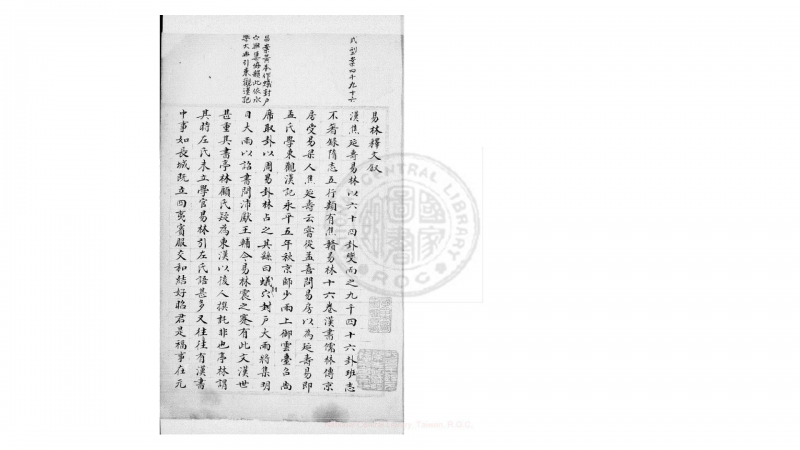 式型案四十九十六
易林釋文敘
漢焦延壽易林以六十四卦變而之九千四十六卦班志
不著錄隋志五行類有焦贛易林十六卷漢書儒林傳京
房受易梁人焦延壽云嘗從孟喜問易房以為延壽易即
孟氏學東觀漢記永平五年秋京師少雨上御雲臺召尚
席取卦以周易卦林占之其繇曰蟻穴封戶大雨將集明
日大雨以詔書問沛獻王輔今易林震之蹇有此文漢世
甚重其書亭林顧氏疑為東漢以後人撰託非也亭林謂
其時左氏未立學官易林引左氏語甚多又往往有漢書
中事如長城既立四夷賓服交和結好昭君是福事在元